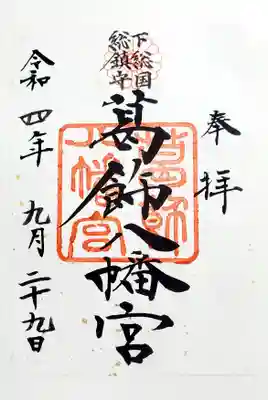 奉拝
下総国
総鎮守
葛飾八幡宮
令和四年九月二十九日
葛飾
八幡宮